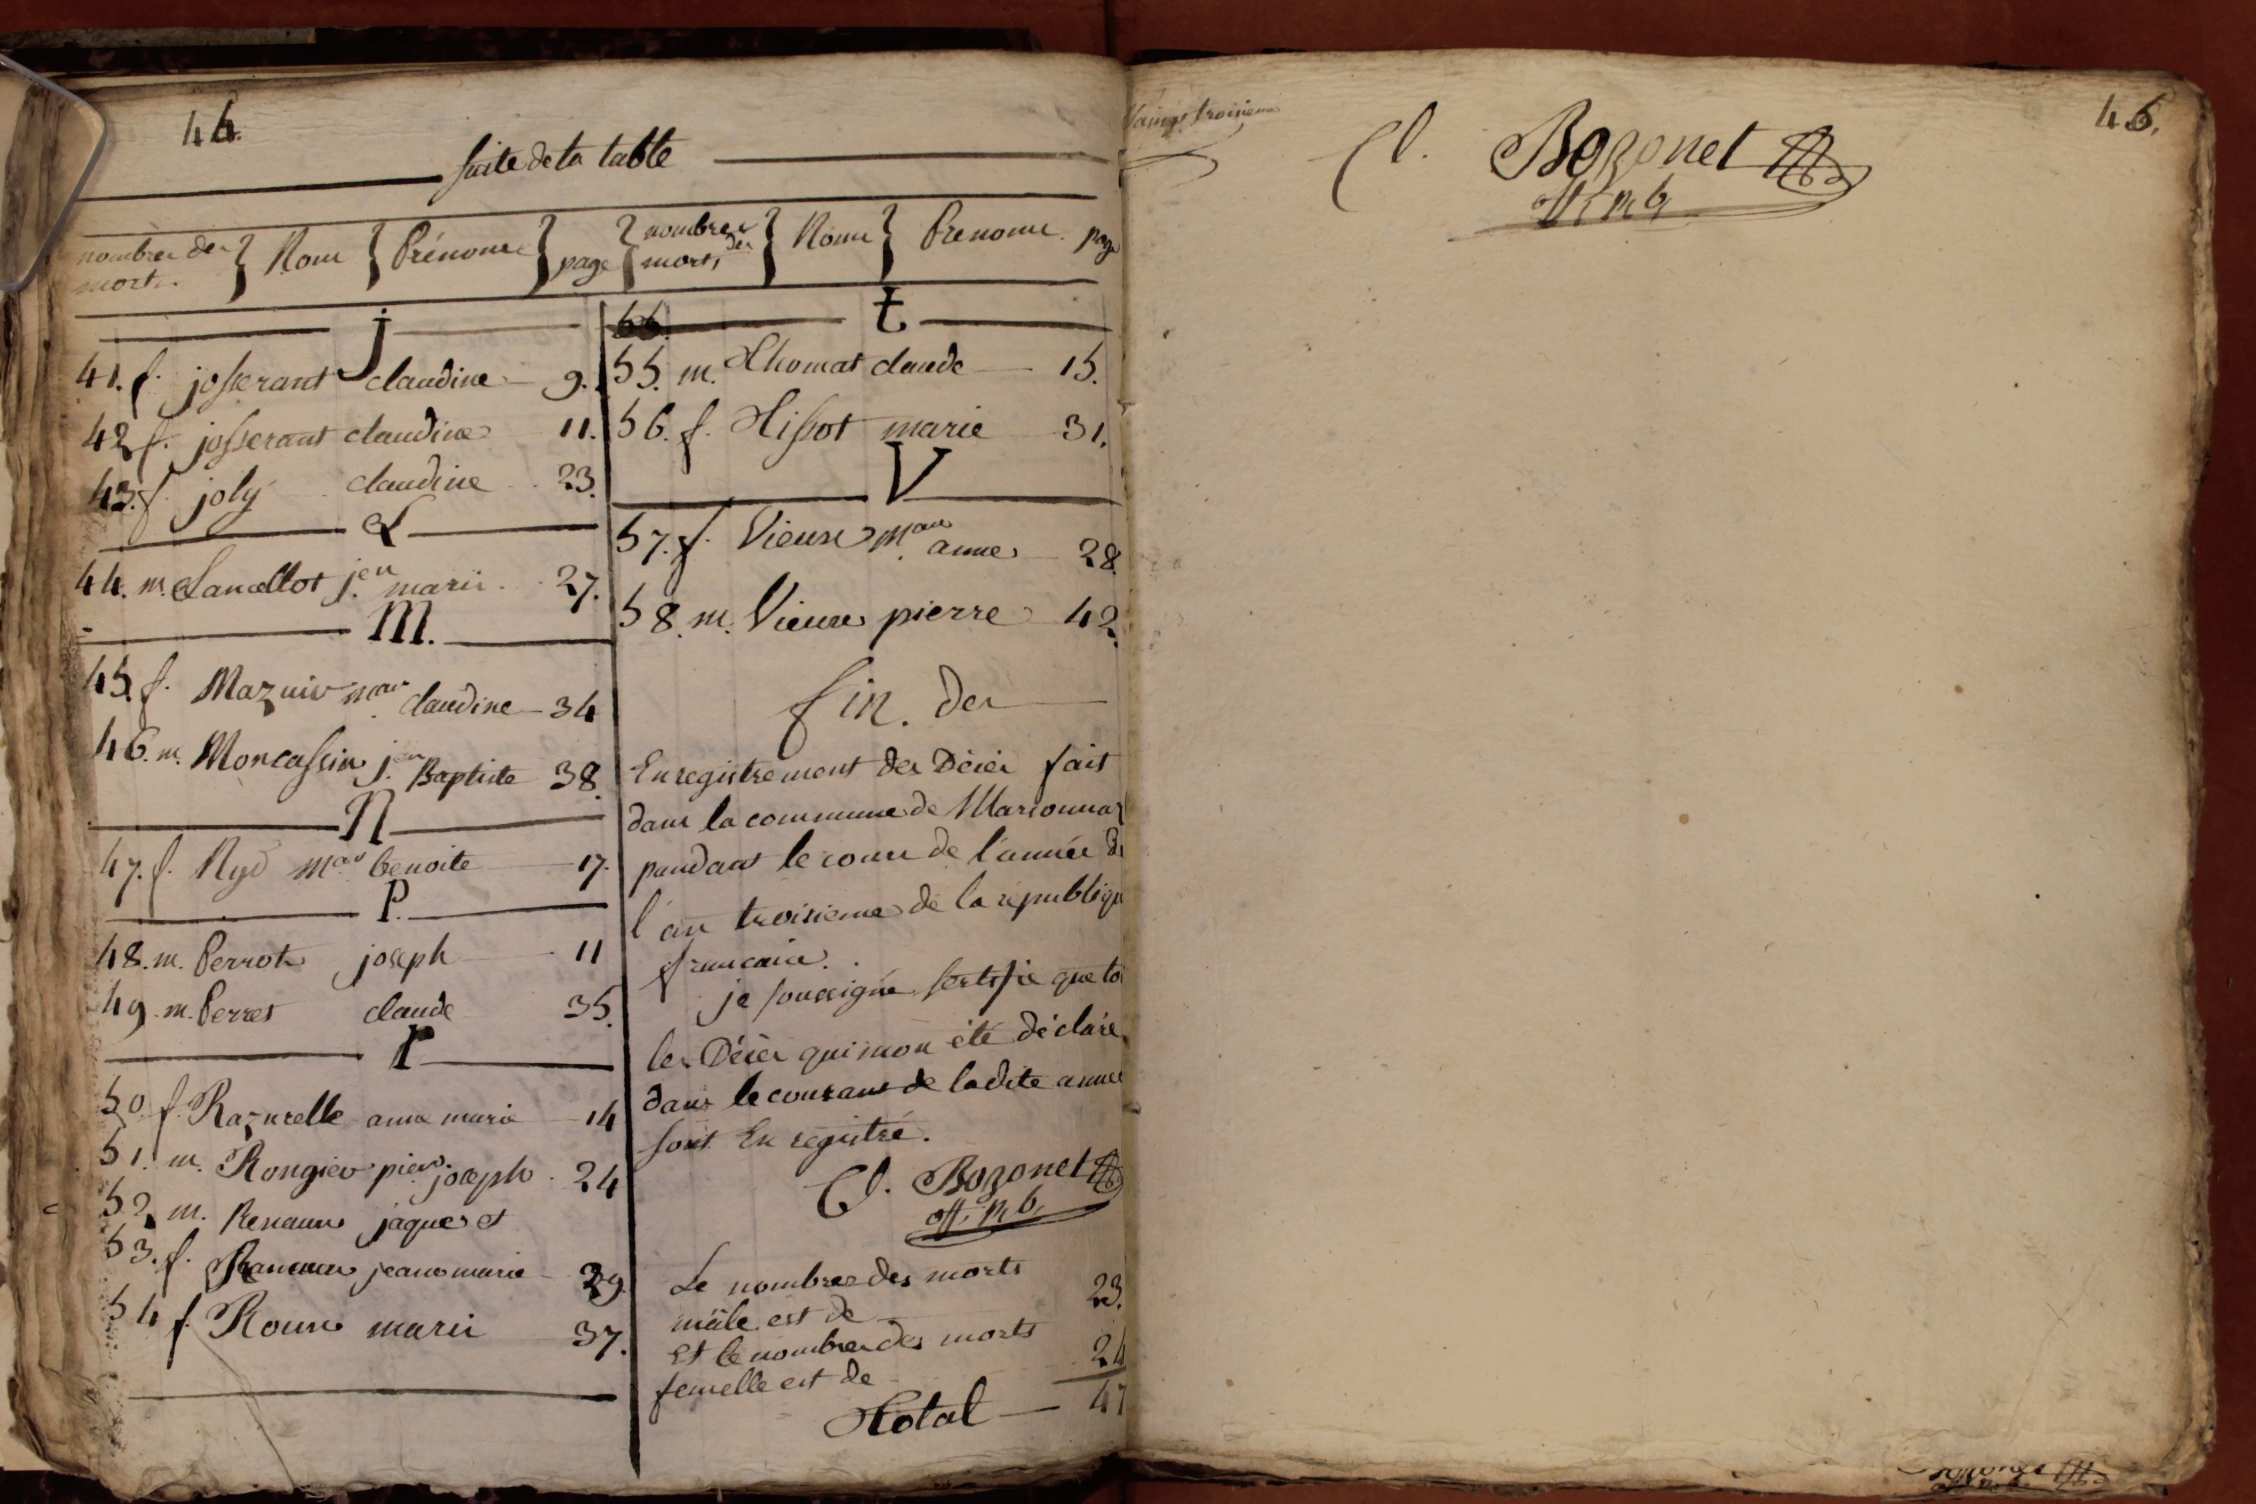 44.
suite de la table
nombres des morts. Nom Prénoms page
j
41. f. josserant claudine 9.
42 f. josserant claudine 11.
43. f. joly claudine 23.
L
44. m. Lancellot j.en marie 27.
M.
45. f. Mazuir claudine 34
46. m. Moncassin j.en Baptiste 38.
N
47. f. Nyd benoite 17.
P.
48. m. Perrot joseph 11
49. m. Perret claude 35.
r
50. f. Razurelle anne marie 14
51. m. Rongier joseph 24
52 m. jaques et
53. f. jeanne marie 29
54 f. Roux marie 37.
nombres des morts, Noms Prenoms. page
t
55. m. Thomas claude 15.
56. f. Tissot marie 31.
V
57. f. Vieux anne 28.
58. m. Vieux pierre 42.
fin. des
Enregistrement des Décès fait
dans la commune de Marsonnas
pandant le cours de l'année de
l'an troisieme de la republique
francaise.
je soussigné sertifie que
les Décès qui mon été déclaré
dans le courant de ladite année
sont En registré.
Cl. Bozonet
off. p. b.
Le nombre des morts
mâle est de 23.
et le nombre des morts
femelle est de 24
Total 47
troisieme
46.
Cl. Bozonet
off. p. b.